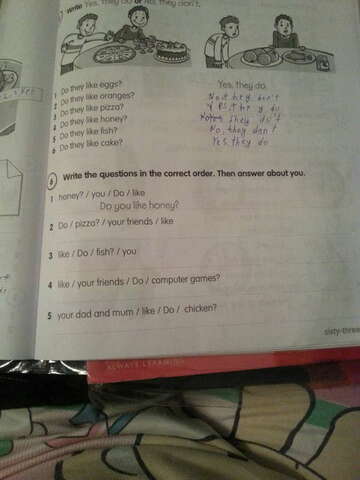 Write Yes, they do or No, they don't.
1 Do they like eggs? Yes, they do.
2 Do they like oranges? No, they don't
3 Do they like pizza? Yes, they do
4 Do they like honey? they do't
5 Do they like fish? No, they don't
6 Do they like cake? Yes, they do
6 Write the questions in the correct order. Then answer about you.
1 honey? / you / Do / like
Do you like honey?
2 Do / pizza? / your friends / like
3 like / Do / fish? / you
4 like / your friends / Do / computer games?
5 your dad and mum / like / Do / chicken?
sixty-three
ALWAYS LEARNING